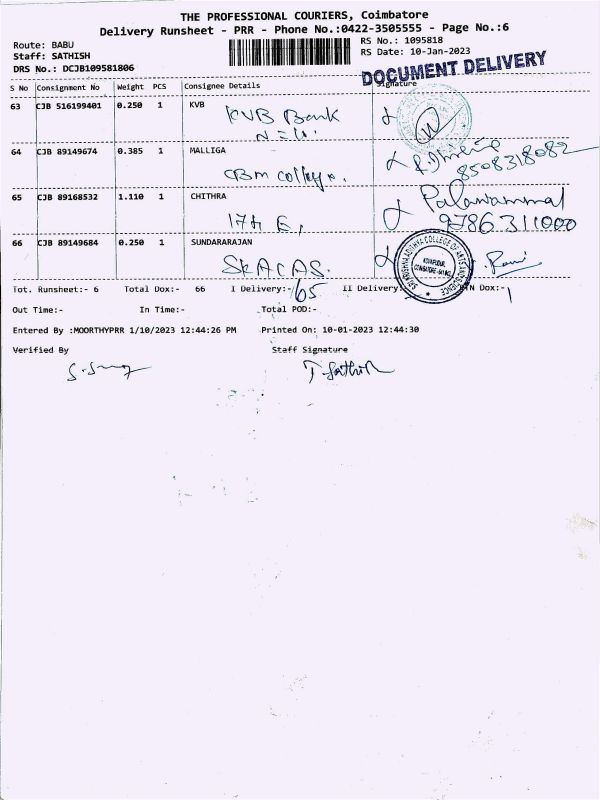 THE PROFESSIONAL COURIERS, Coimbatore
Delivery Runsheet - PRR - Phone No.:0422-3505555 - Page No.:6
Route: BABU RS No.: 1095818
Staff: SATHISH RS Date: 10-Jan-2023
DRS No.: DCJB109581806 DOCUMENT DELIVERY
S No Consignment No Weight PCS Consignee Details Signature
63 CJB 516199401 0.250 1 KVB
KVB Bank
64 CJB 89149674 0.385 1 MALLIGA
CBM college. 8508318082
65 CJB 89168532 1.110 1 CHITHRA Palaniammal
17th E, 9786311000
66 CJB 89149684 0.250 1 SUNDARARAJAN
SKACAS. Rani
SRI KRISHNA ADITHYA COLLEGE OF ARTS AND SCIENCE
KOVAIPUDUR,
COIMBATORE-641 042.
Tot. Runsheet:- 6 Total Dox:- 66 I Delivery:- 65 II Delivery: RTN Dox:- 1
Out Time:- In Time:- Total POD:-
Entered By :MOORTHYPRR 1/10/2023 12:44:26 PM Printed On: 10-01-2023 12:44:30
Verified By Staff Signature
T. Sathish